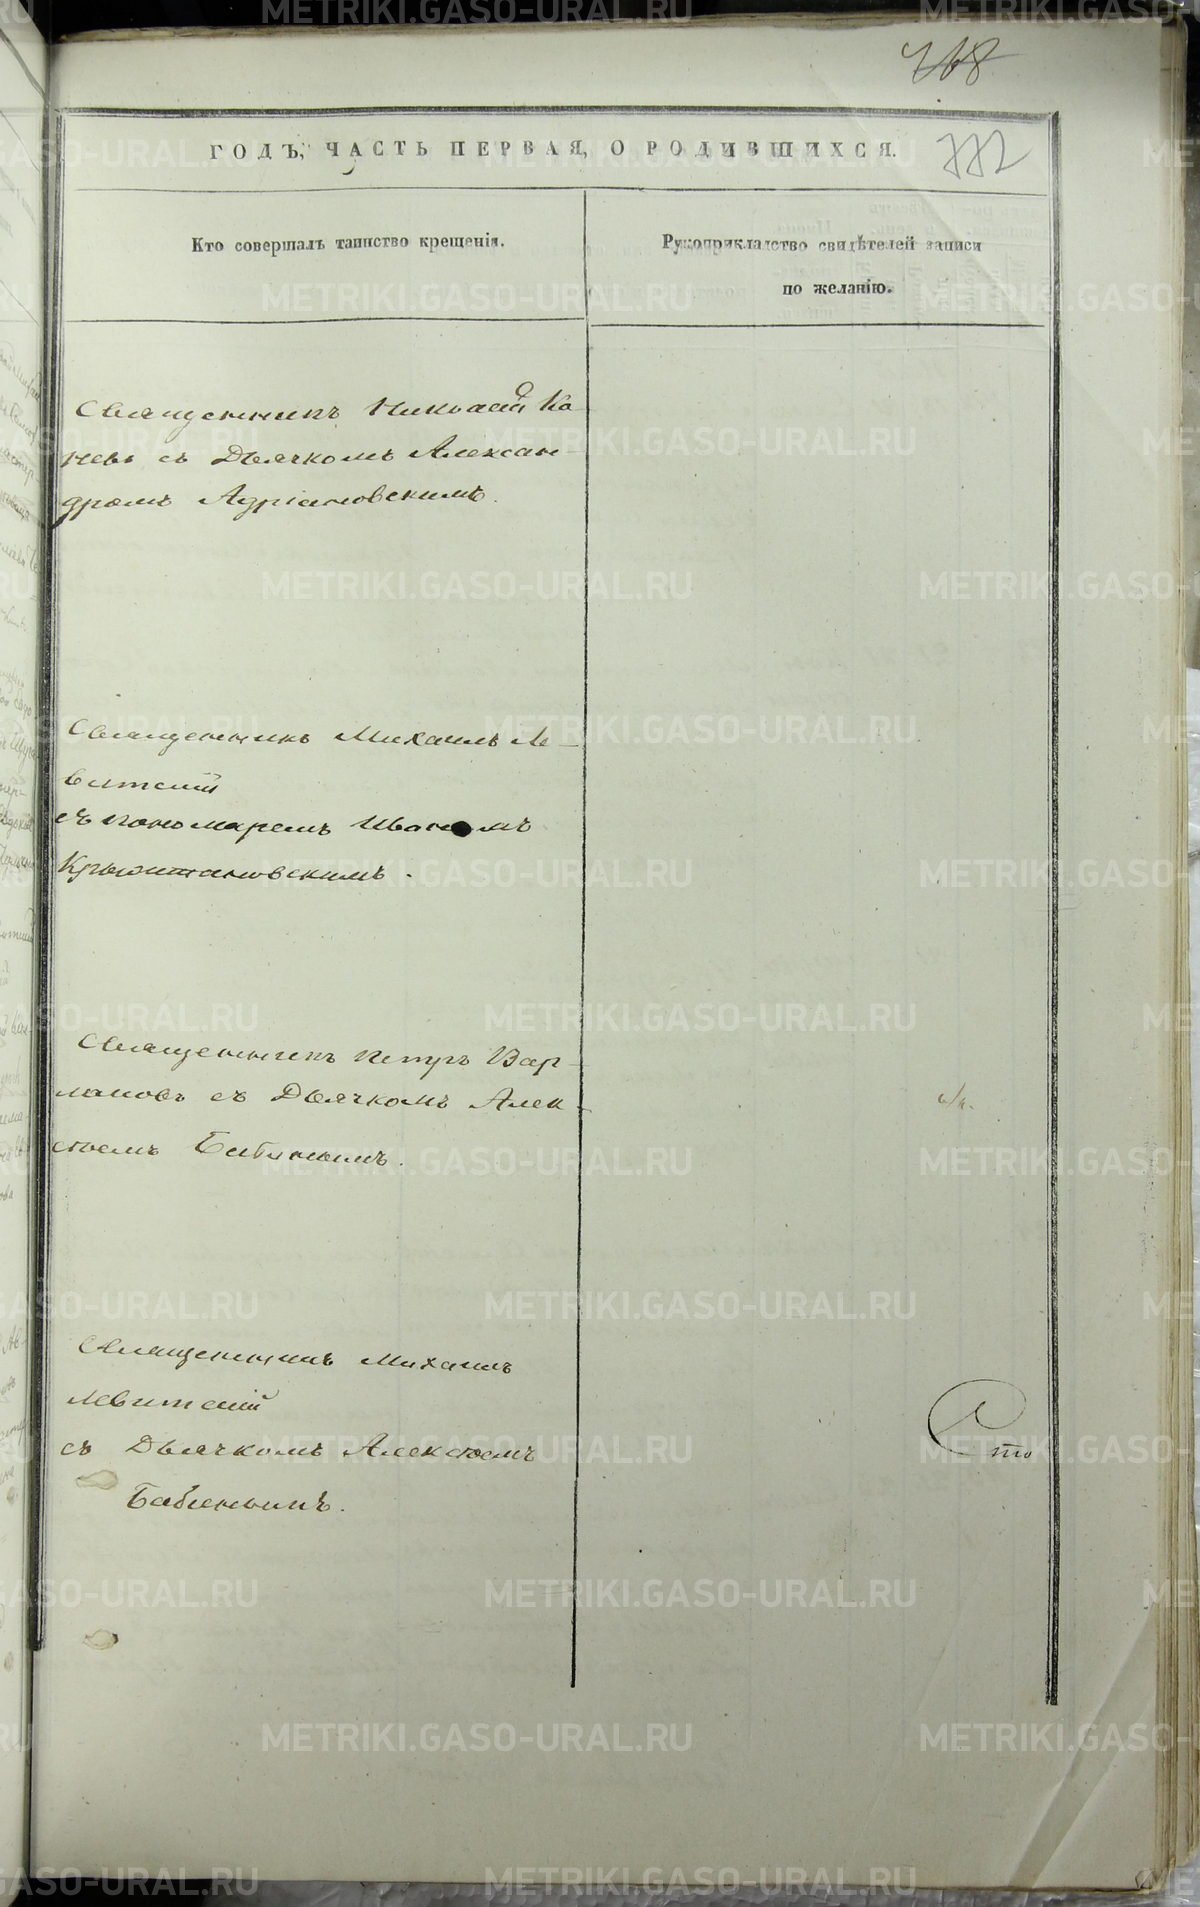 768
772
ГОДЪ, ЧАСТЬ ПЕРВАЯ, О РОДИВШИХСЯ.
Кто совершалъ таинство крещенія.
Рукоприкладство свидѣтелей записи
по желанію.
Священникъ Николай Ка-
невъ съ Дьячкомъ Алексан-
дромъ Адріановскимъ.
Священникъ Михаилъ Ле-
витскій
съ пономаремъ Иваномъ
Крыжтановскимъ.
Священникъ Петръ Вар-
лаковъ съ Дьячкомъ Алек-
сѣемъ Бабинымъ.
Священникъ Михаилъ
Левитскій
съ Дьячкомъ Алексѣемъ
Бабинымъ.
METRIKI.GASO-URAL.RU